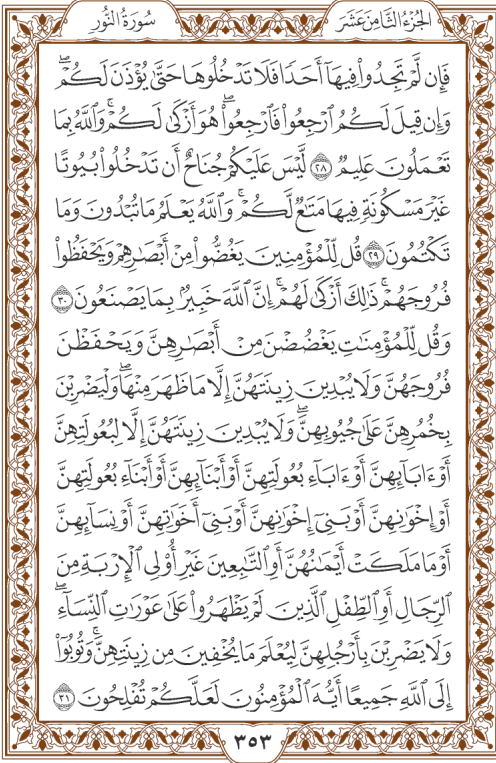 الجُزْءُ الثَّامِنَ عَشَرَ
سُورَةُ النُّور
فَإِن لَّمْ تَجِدُوا۟ فِيهَآ أَحَدًا فَلَا تَدْخُلُوهَا حَتَّىٰ يُؤْذَنَ لَكُمْ ۖ
وَإِن قِيلَ لَكُمُ ٱرْجِعُوا۟ فَٱرْجِعُوا۟ ۖ هُوَ أَزْكَىٰ لَكُمْ ۚ وَٱللَّهُ بِمَا
تَعْمَلُونَ عَلِيمٌ ٢٨ لَّيْسَ عَلَيْكُمْ جُنَاحٌ أَن تَدْخُلُوا۟ بُيُوتًا
غَيْرَ مَسْكُونَةٍ فِيهَا مَتَـٰعٌ لَّكُمْ ۚ وَٱللَّهُ يَعْلَمُ مَا تُبْدُونَ وَمَا
تَكْتُمُونَ ٢٩ قُل لِّلْمُؤْمِنِينَ يَغُضُّوا۟ مِنْ أَبْصَـٰرِهِمْ وَيَحْفَظُوا۟
فُرُوجَهُمْ ۚ ذَٰلِكَ أَزْكَىٰ لَهُمْ ۗ إِنَّ ٱللَّهَ خَبِيرٌۢ بِمَا يَصْنَعُونَ ٣٠
وَقُل لِّلْمُؤْمِنَـٰتِ يَغْضُضْنَ مِنْ أَبْصَـٰرِهِنَّ وَيَحْفَظْنَ
فُرُوجَهُنَّ وَلَا يُبْدِينَ زِينَتَهُنَّ إِلَّا مَا ظَهَرَ مِنْهَا ۖ وَلْيَضْرِبْنَ
بِخُمُرِهِنَّ عَلَىٰ جُيُوبِهِنَّ ۖ وَلَا يُبْدِينَ زِينَتَهُنَّ إِلَّا لِبُعُولَتِهِنَّ
أَوْ ءَابَآئِهِنَّ أَوْ ءَابَآءِ بُعُولَتِهِنَّ أَوْ أَبْنَآئِهِنَّ أَوْ أَبْنَآءِ بُعُولَتِهِنَّ
أَوْ إِخْوَٰنِهِنَّ أَوْ بَنِىٓ إِخْوَٰنِهِنَّ أَوْ بَنِىٓ أَخَوَٰتِهِنَّ أَوْ نِسَآئِهِنَّ
أَوْ مَا مَلَكَتْ أَيْمَـٰنُهُنَّ أَوِ ٱلتَّـٰبِعِينَ غَيْرِ أُو۟لِى ٱلْإِرْبَةِ مِنَ
ٱلرِّجَالِ أَوِ ٱلطِّفْلِ ٱلَّذِينَ لَمْ يَظْهَرُوا۟ عَلَىٰ عَوْرَٰتِ ٱلنِّسَآءِ ۖ
وَلَا يَضْرِبْنَ بِأَرْجُلِهِنَّ لِيُعْلَمَ مَا يُخْفِينَ مِن زِينَتِهِنَّ ۚ وَتُوبُوٓا۟
إِلَى ٱللَّهِ جَمِيعًا أَيُّهَ ٱلْمُؤْمِنُونَ لَعَلَّكُمْ تُفْلِحُونَ ٣١
٣٥٣